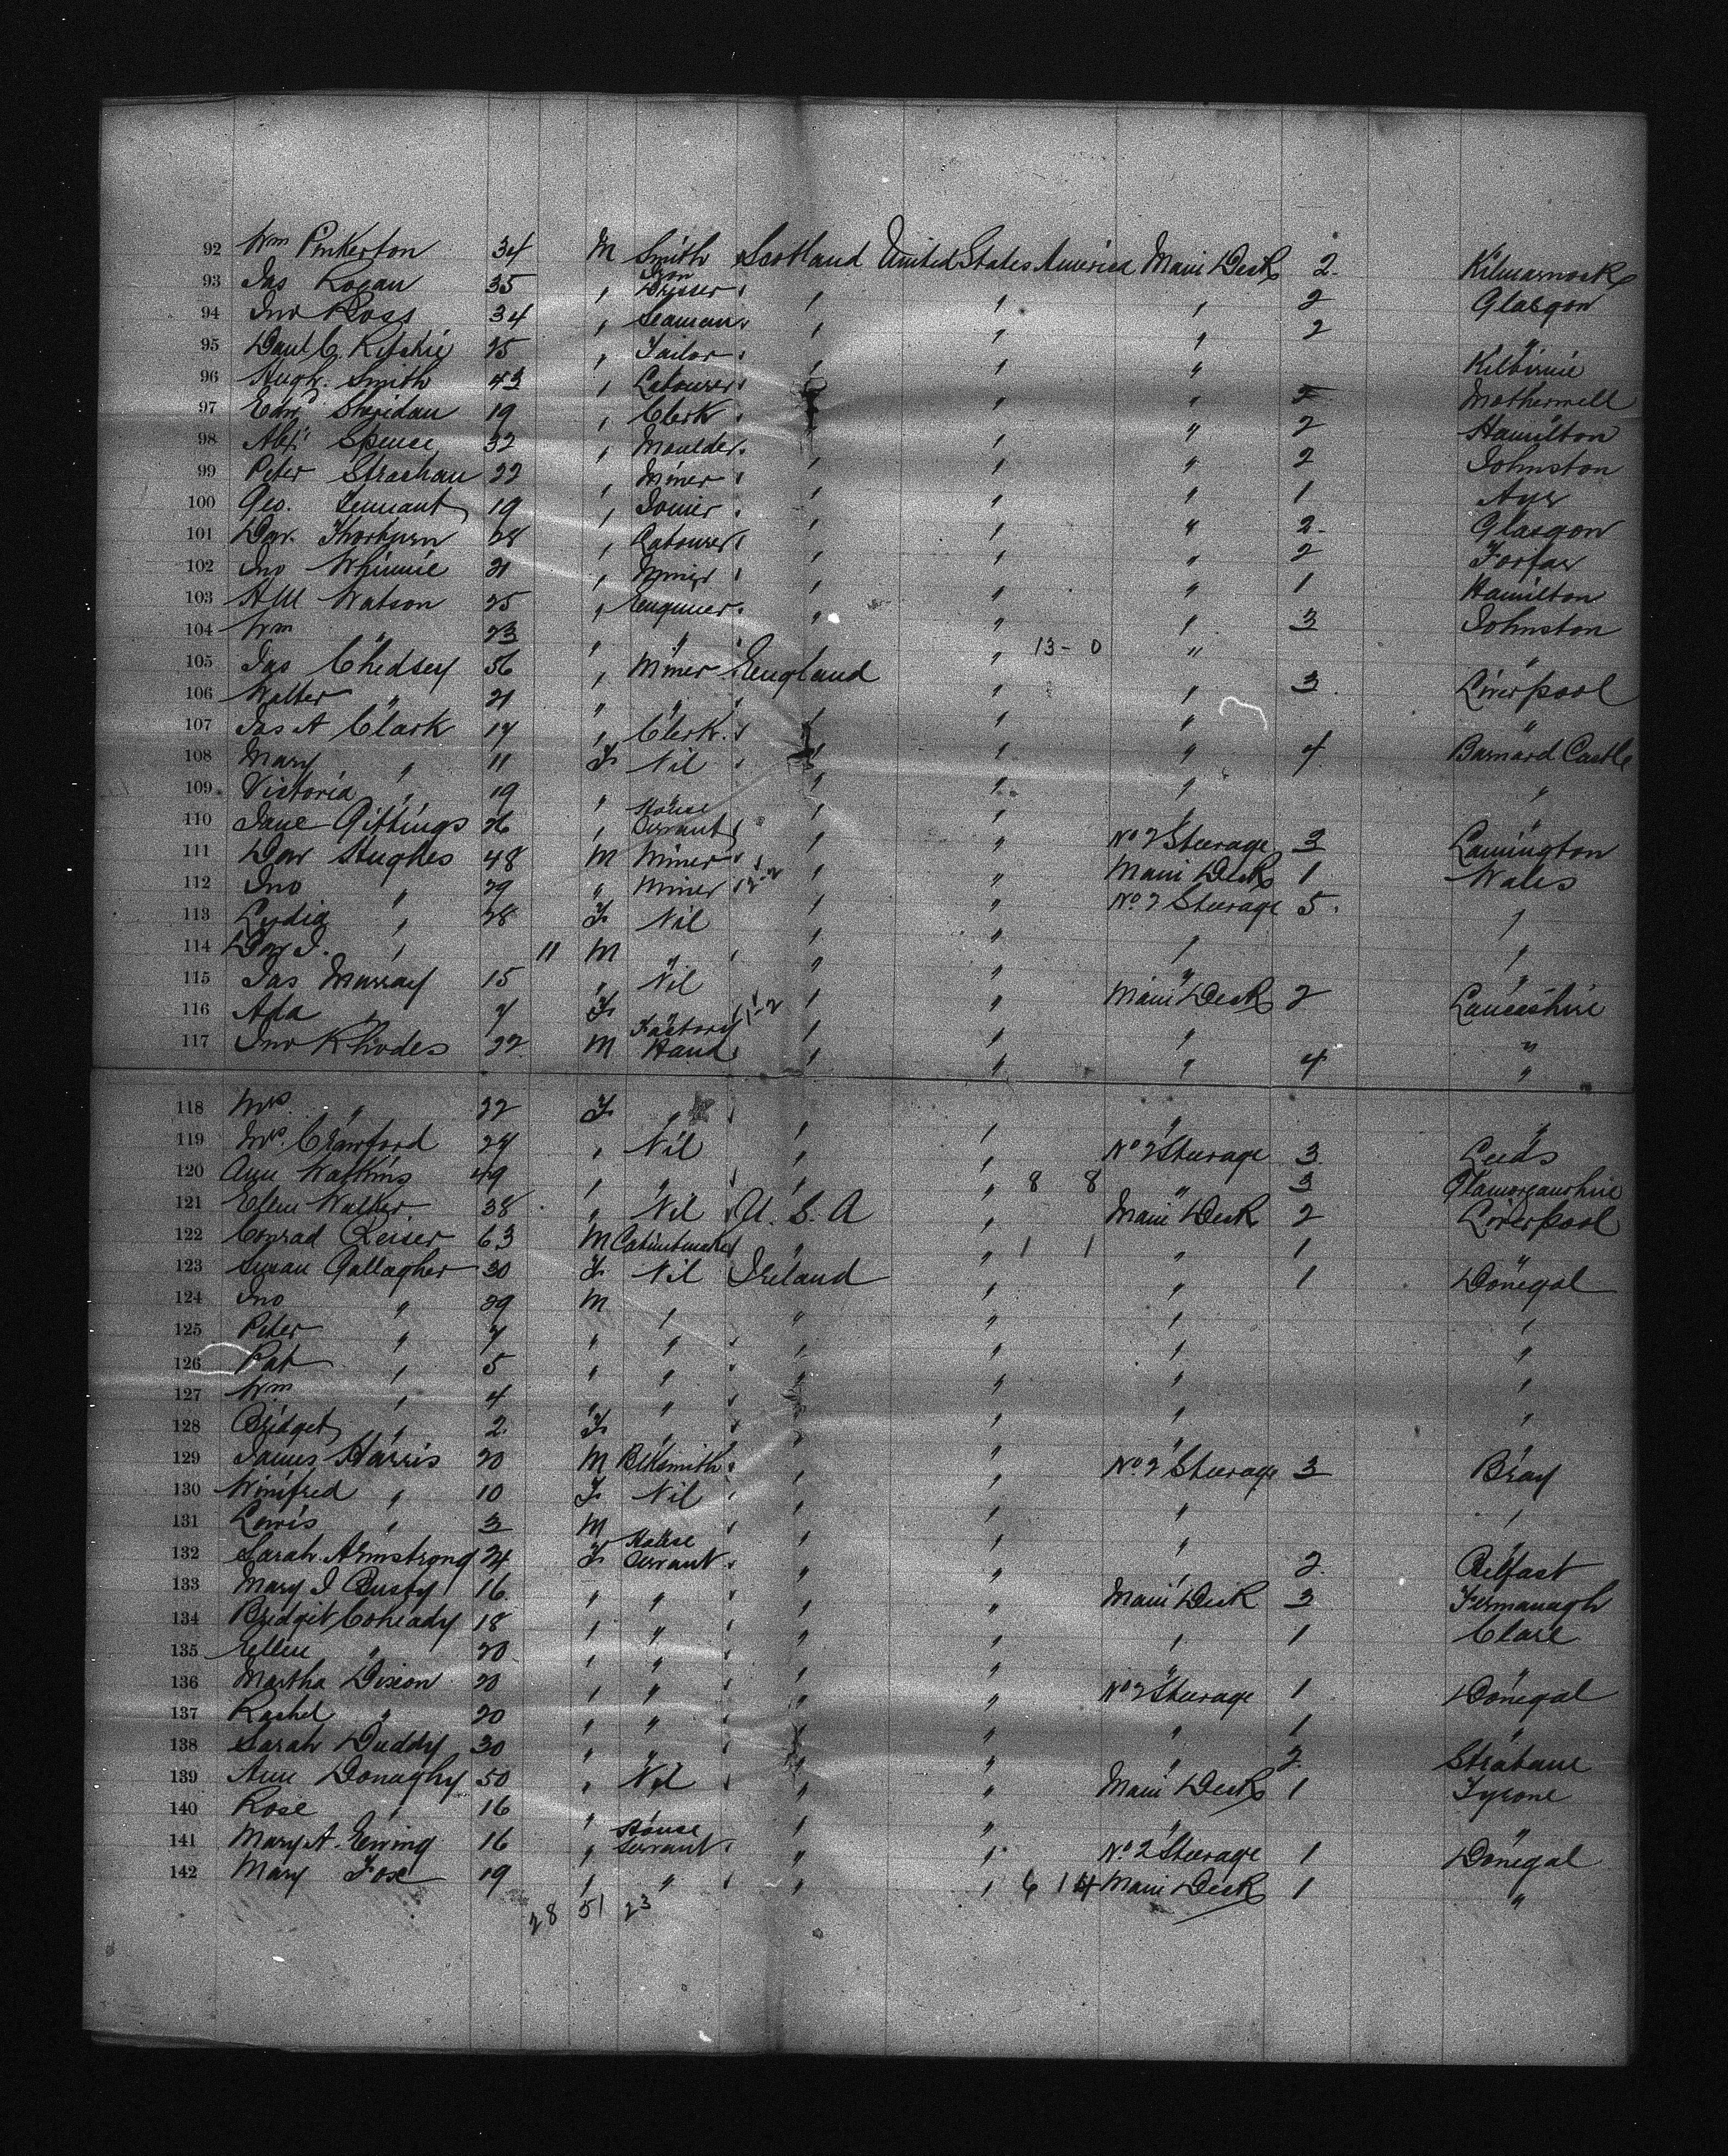 92 Wm Pinkerton 34 M Smith Scotland United States America Main Deck 2 Kilmarnock
93 Jas Logan 35 " Iron Dresser " " " " 2 Glasgow
94 Jno Ross 34 " Seaman " " " " 2 "
95 Danl C. Ritchie 25 " Tailor " " " " Kilbirnie
96 Hugh Smith 43 " Labourer " " " " Motherwell
97 Edwd Sheridan 19 " Clerk " " " " 2 Hamilton
98 Alexr Spence 32 " Moulder " " " " 2 Johnston
99 Peter Strachan 22 " Miner " " " " 1 Ayr
100 Geo. Tennant 19 " Joiner " " " " 2 Glasgow
101 Dav. Thorburn 28 " Labourer " " " " 2 Forfar
102 Jno Whinnie 21 " Miner " " " " 1 Hamilton
103 AM Watson 25 " Engineer " " " " 3 Johnston
104 Wm " 23 " " " " " 13 - 0 " "
105 Jas Chedsey 56 " Miner England " " 3 Liverpool
106 Walter " 21 " " " " " " "
107 Jas A Clark 17 " Clerk " " " " 4 Barnard Castle
108 Mary " 11 F Nil " " " " "
109 Victoria " 19 " " " " " " "
110 Jane Gittings 26 " House Servant " " " No 2 Steerage 3 Lamington
111 Dav Hughes 48 M Miner " " " Main Deck 1 Wales
112 Jno " 29 " Miner " " No 2 Steerage 5 "
113 Lydia " 28 F Nil " " " "
114 Dav J. " 11 M " " " " " "
115 Jas Murray 15 " Nil " " Main Deck 2 Lancashire
116 Ada " 7 F " " " " "
117 Jno Rhodes 22 M Factory Hand " " " " 4 "
118 Mrs " 22 F " " " " " "
119 Mrs. Crawford 24 " Nil " " " No 2 Steerage 3 Leeds
120 Ann Watkins 49 " " " " " 8 8 " 3 Glamorganshire
121 Ellen Walker 38 " Nil U. S. A " Main Deck 2 Liverpool
122 Conrad Reiser 63 M Cabinetmaker " " 1 1 " 1 "
123 Susan Gallagher 30 F Nil Ireland " " 1 Donegal
124 Jno " 29 M " " " " "
125 Peter " 7 " " " " " " "
126 Pat " 5 " " " " " " "
127 Wm " 4 " " " " " " "
128 Bridget " 2 F " " " " " "
129 James Harris 20 M Blksmith " " " No 2 Steerage 3 Bray
130 Winifred " 10 F Nil " " " " "
131 Lewis " 3 M " " " " " "
132 Sarah Armstrong 24 F House Servant " " " " 2 Belfast
133 Mary J 16 " " " " " Main Deck 3 Fermanagh
134 Bridget 18 " " " " " " 1 Clare
135 Ellen " 20 " " " " " " "
136 Martha Dixon 20 " " " " " No 2 Steerage 1 Donegal
137 Rachel " 20 " " " " " " 1 "
138 Sarah Duddy 30 " " " " " " 2 Strabane
139 Ann Donaghy 50 " Nil " " " Main Deck 1 Tyrone
140 Rose " 16 " " " " " "
141 Mary A. Ewing 16 " House Servant " " " No 2 Steerage 1 Donegal
142 Mary Fox 19 " " " " " 6 14 Main Deck 1 "
28 51 23